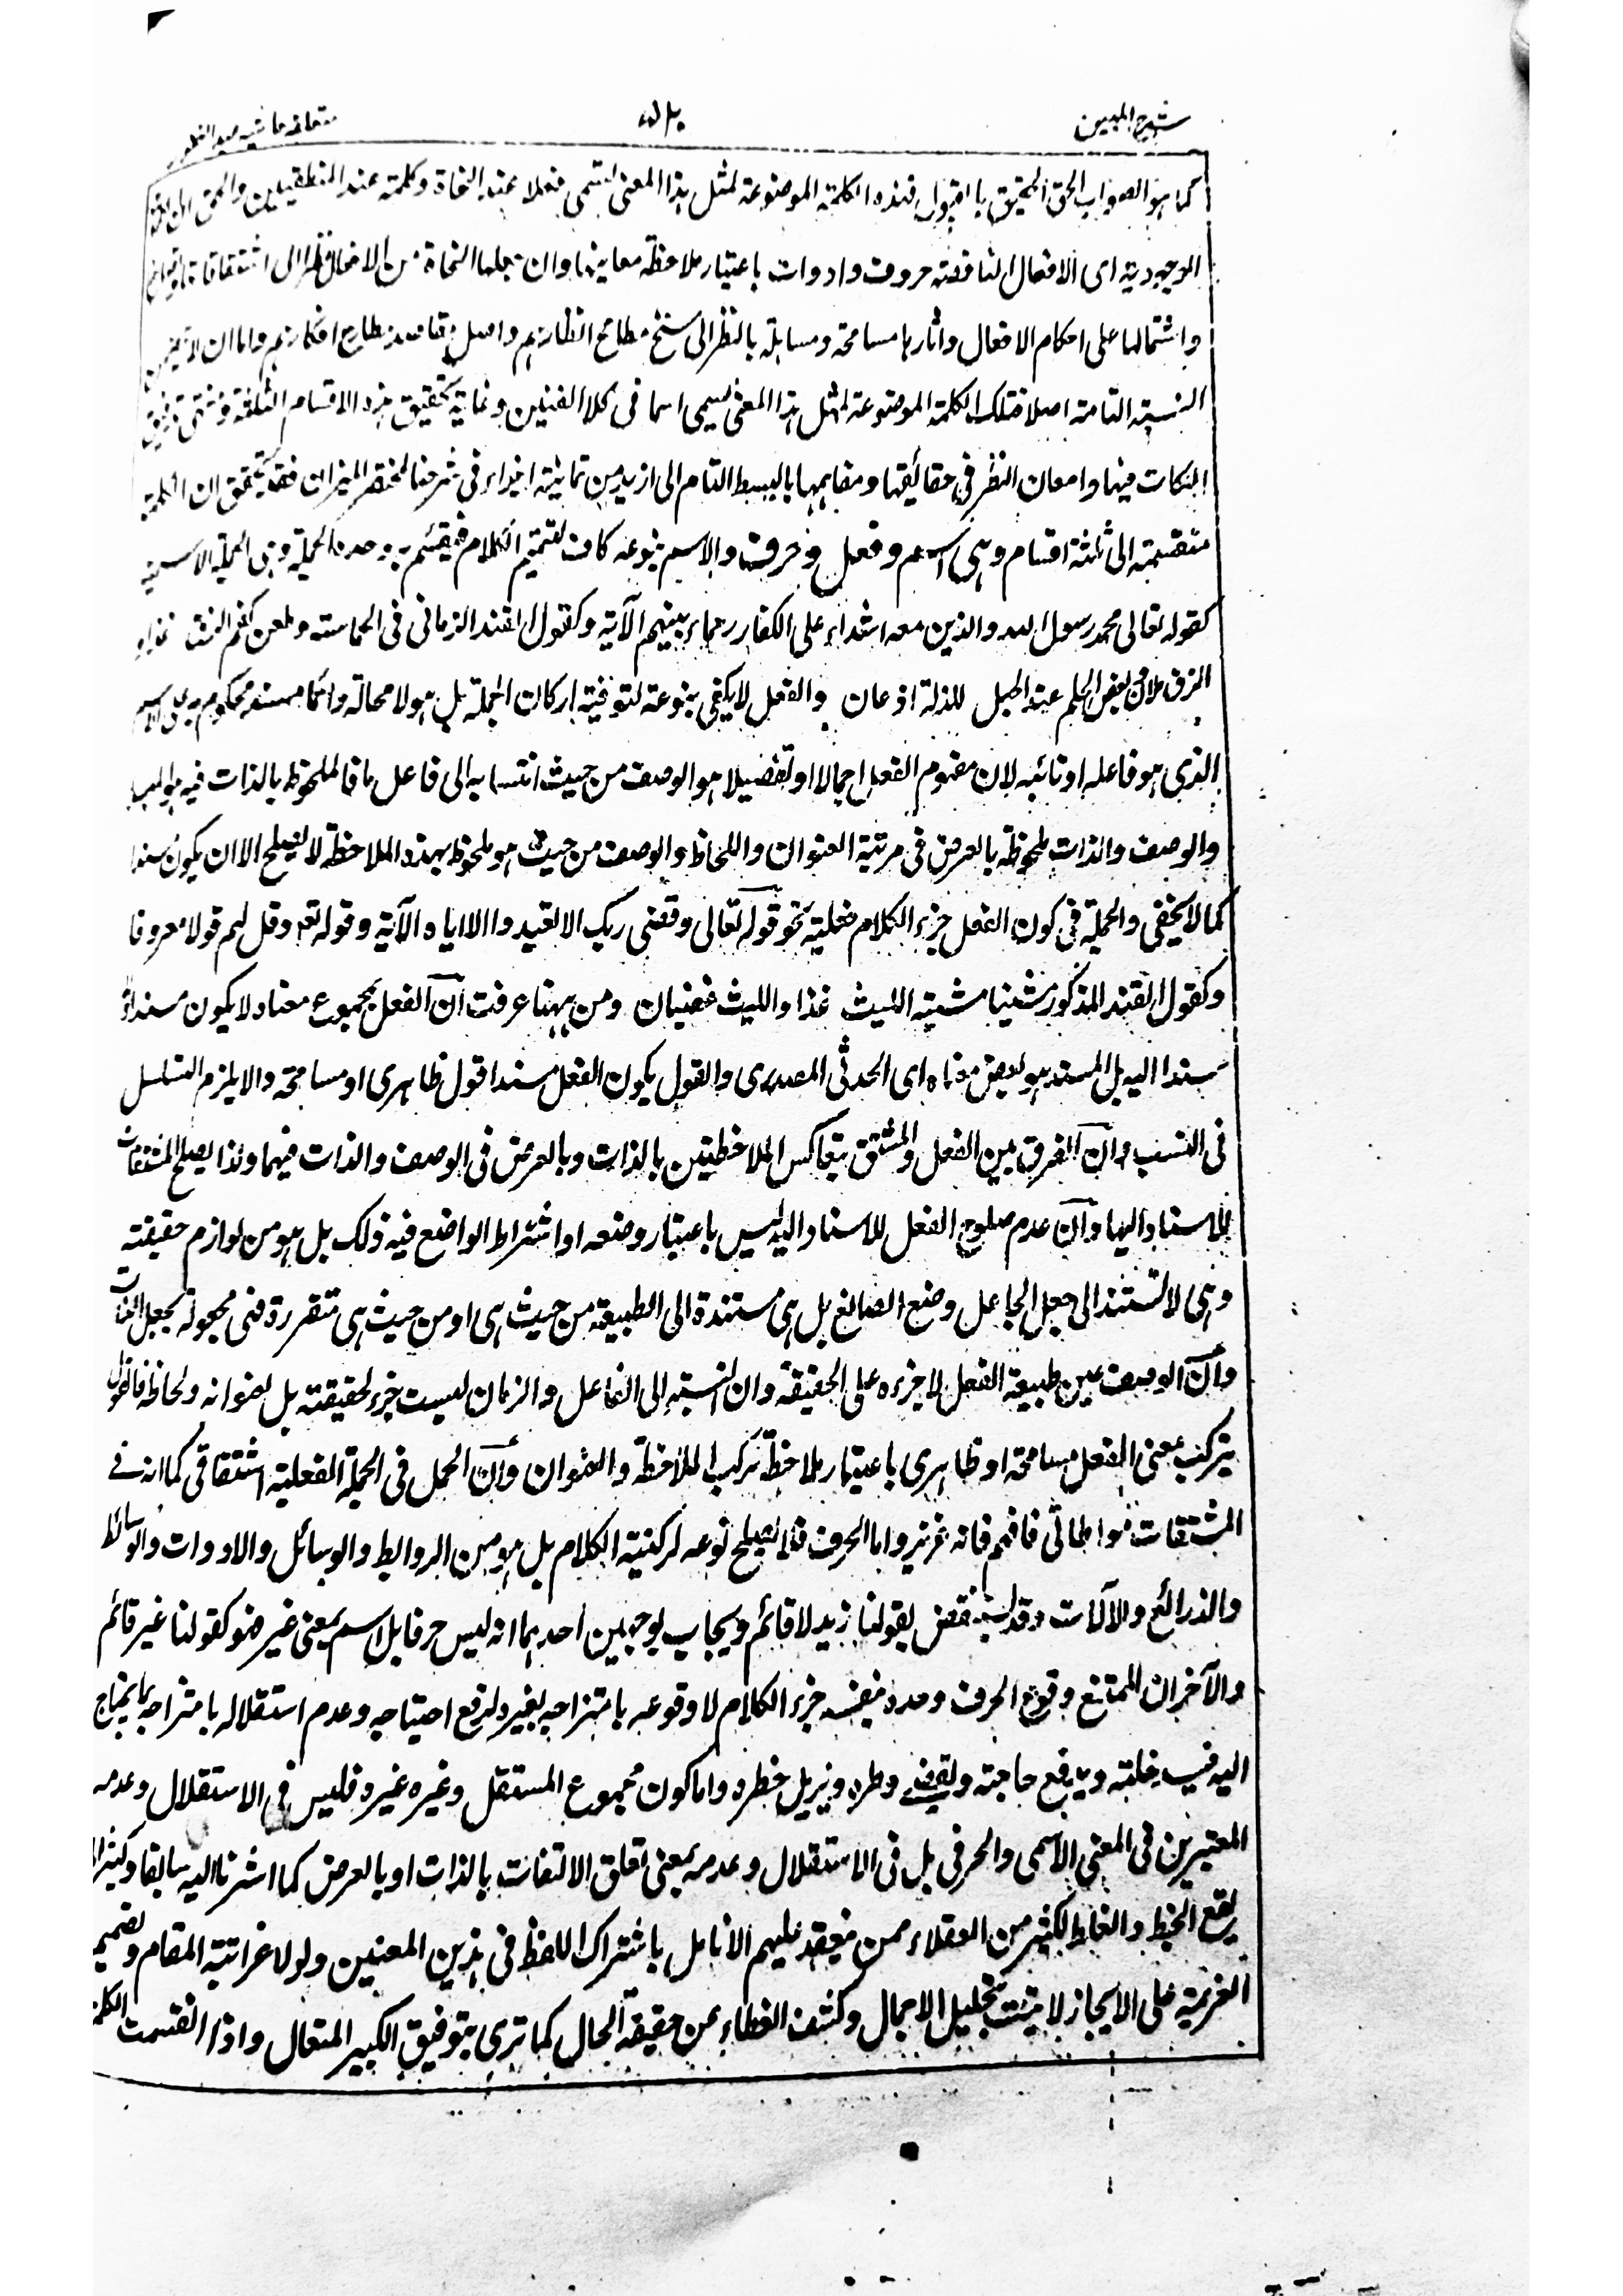 شرح المبين
متعلقه حاشيه عبد الغفور
كما هو الصواب الحق الحقيق بالقبول فهذه الكلمة الموضوعة لمثل هذا المعنى تسمى فعلا عند النحاة وكلمة عند المنطقيين والحق ان
الوجودية اى الافعال الناقصة حروف وادوات باعتبار ملاحظة معانيها وان جعلها النحاة من الافعال نظرا الى اشتقاقاتها
واشتمالها على احكام الافعال واثارها مسامحة ومساهلة بالنظر الى سنخ مطامح انظارهم واصل مقاصد مطارح افكارهم واما ان لا
النسبة التامة اصلا فتلك الكلمة الموضوعة لمثل هذا المعنى يسمى اسما فى كلا الفنين وغاية تحقيق هذه الاقسام الثلثة
النكات فيها وامعان النظر فى حقائقها ومفاهيمها بالبسط التام الى ازيد من ثمانية اجزاء فى شرحنا لمختصر الميزان فقد تحقق ان الكلمة
منقسمة الى ثلثة اقسام وهى اسم وفعل وحرف والاسم بنوعه كاف لتتميم الكلام فيقسم به وحده الجملة وهى الجملة الاسمية
كقوله تعالى محمد رسول الله والذين معه اشداء على الكفار رحماء بينهم الآية وكقول الفند الزمانى فى الحماسة وطعن كفم الزق غذا و
الزق ملآن وبعض الحلم عند الجهل للذلة اذعان والفعل لا يكفى بنوعه لتوفية اركان الجملة بل هو لا محالة دائما مسند محكوم به على الاسم
الذى هو فاعله او نائبه لان مفهوم الفعل اجمالا او تفصيلا هو الوصف من حيث انتسابه الى فاعل ما فالملحوظ بالذات فيه هو
والوصف والذات ملحوظة بالعرض فى مرتبة العنوان واللحاظ والوصف من حيث هو ملحوظ بهذه الملاحظة لا يصلح الا ان يكون مسندا
كما لا يخفى والجملة فى كون الفعل جزء الكلام فعلية نحو قوله تعالى وقضى ربك الا تعبدوا الا اياه الآية وقوله تعـ وقل لهم قولا معروفا
وكقول الفند المذكور مشينا مشية الليث غدا والليث غضبان ومن ههنا عرفت ان الفعل بمجموع معناه لا يكون مسندا و
مسندا اليه بل المسند هو بعض معناه اى الحدثى المصدرى والقول بكون الفعل مسندا قول ظاهرى او مسامحة والا يلزم التسلسل
فى النسب وان الفرق بين الفعل والمشتق بتعاكس الملاحظتين بالذات وبالعرض فى الوصف والذات فيهما ولذا يصلح المشتقات
للاسناد اليها وان عدم صلوح الفعل للاسناد اليه ليس باعتبار وضعه او اشتراط الواضع فيه ذلك بل هو من لوازم حقيقته
وهى لا تستند الى جعل الجاعل وصنع الصانع بل هى مستندة الى الطبيعة من حيث هى او من حيث هى متقررة فهى مجعولة بجعل الذات
وان الوصف عين طبيعة الفعل لا جزءه على الحقيقة وان النسبة الى الفاعل والزمان ليست جزء لحقيقته بل لعنوانه ولحاظه فالقول
بتركب معنى الفعل مسامحة او ظاهرى باعتبار ملاحظة تركب الملاحظة والعنوان وان الحمل فى الجملة الفعلية اشتقاقى كما انه فى
المشتقات مواطاتى فافهم فانه عزيز واما الحرف فلا يصلح نوعه لركنية الكلام بل هو من الروابط والوسائل والادوات والوسائط
والذرائع والآلات وقد ينتقض بقولنا زيد لا قائم ويجاب بوجهين احدهما انه ليس حرفا بل اسم بمعنى غير هو كقولنا غير قائم
والآخر ان الممتنع وقوع الحرف وحده بنفسه جزء الكلام لا وقوعه بامتزاجه بغيره لرفع احتياجه وعدم استقلاله بامتزاجه بما يحتاج
اليه فيسد خلته ويدفع حاجته ويقضى وطره ويزيل خطره واما كون مجموع المستقل وغيره غيره فليس فى الاستقلال وعدمه
المعتبرين فى المعنى الاسمى والحرفى بل فى الاستقلال وعدمه بمعنى تعلق الالتفات بالذات او بالعرض كما اشرنا اليه سابقا وكثيرا
يقع الخبط والغلط لكثير من العقلاء ممن يعقد عليهم الانامل باشتراك اللفظ فى هذين المعنيين ولولا غرابة المقام وتصميم
العزيمة على الايجاز لاتيت بتحليل الاجمال وكشف الغطاء عن حقيقة الحال كما ترى بتوفيق الكبير المتعال واذا انقسمت الكلمة